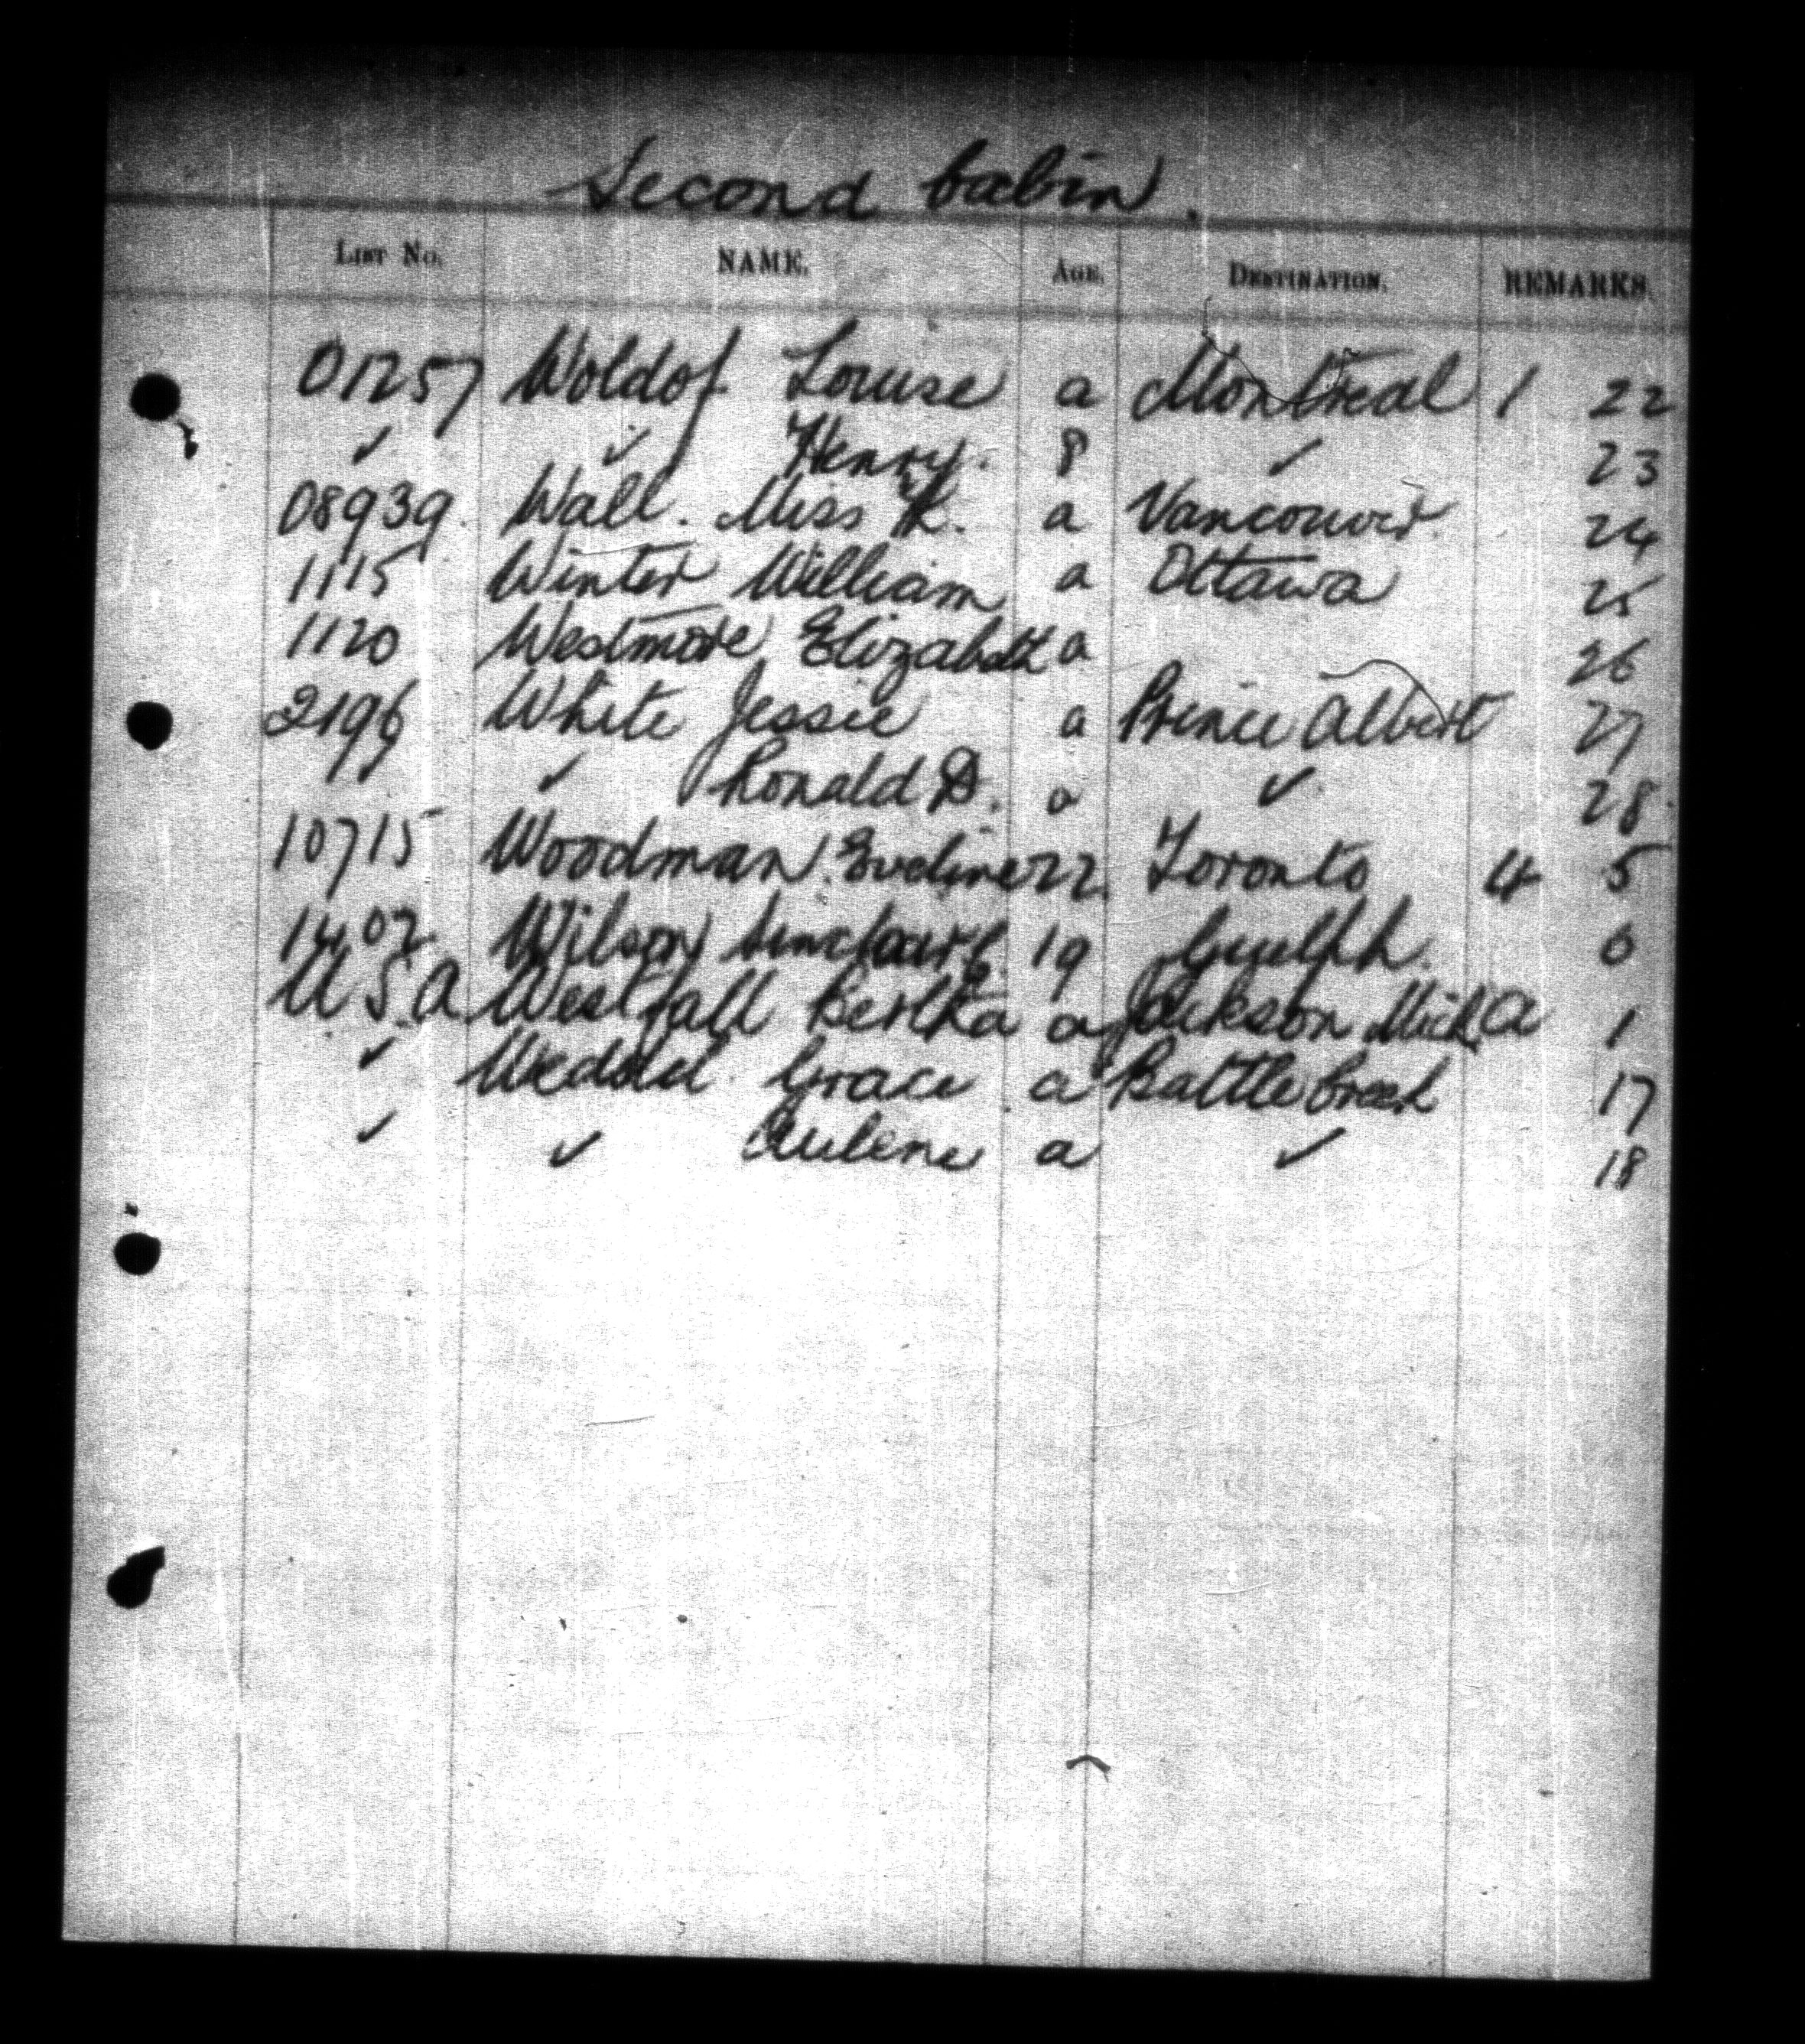 Second Cabin.
LIST NO. NAME. AGE. DESTINATION. REMARKS.
01257 Woldof Louise a Montreal 1 22
✓ ✓ Henry. 8 ✓ 23
08939. Wall. Miss K. a Vancouver. 24
1115 Winter William a Ottawa 25
1120 Westmore Elizabeth a 26
2196 White Jessie a Prince Albert 27
✓ Ronald D. a ✓ 28
10715 Woodman Eveline 22 Toronto 4 5
1402 Wilson Sinclair 19 Guelph. 6
U.S.A Westfall Bertha a Jackson Mich A 1
✓ Grace a Battle Creek 17
✓ ✓ a ✓ 18